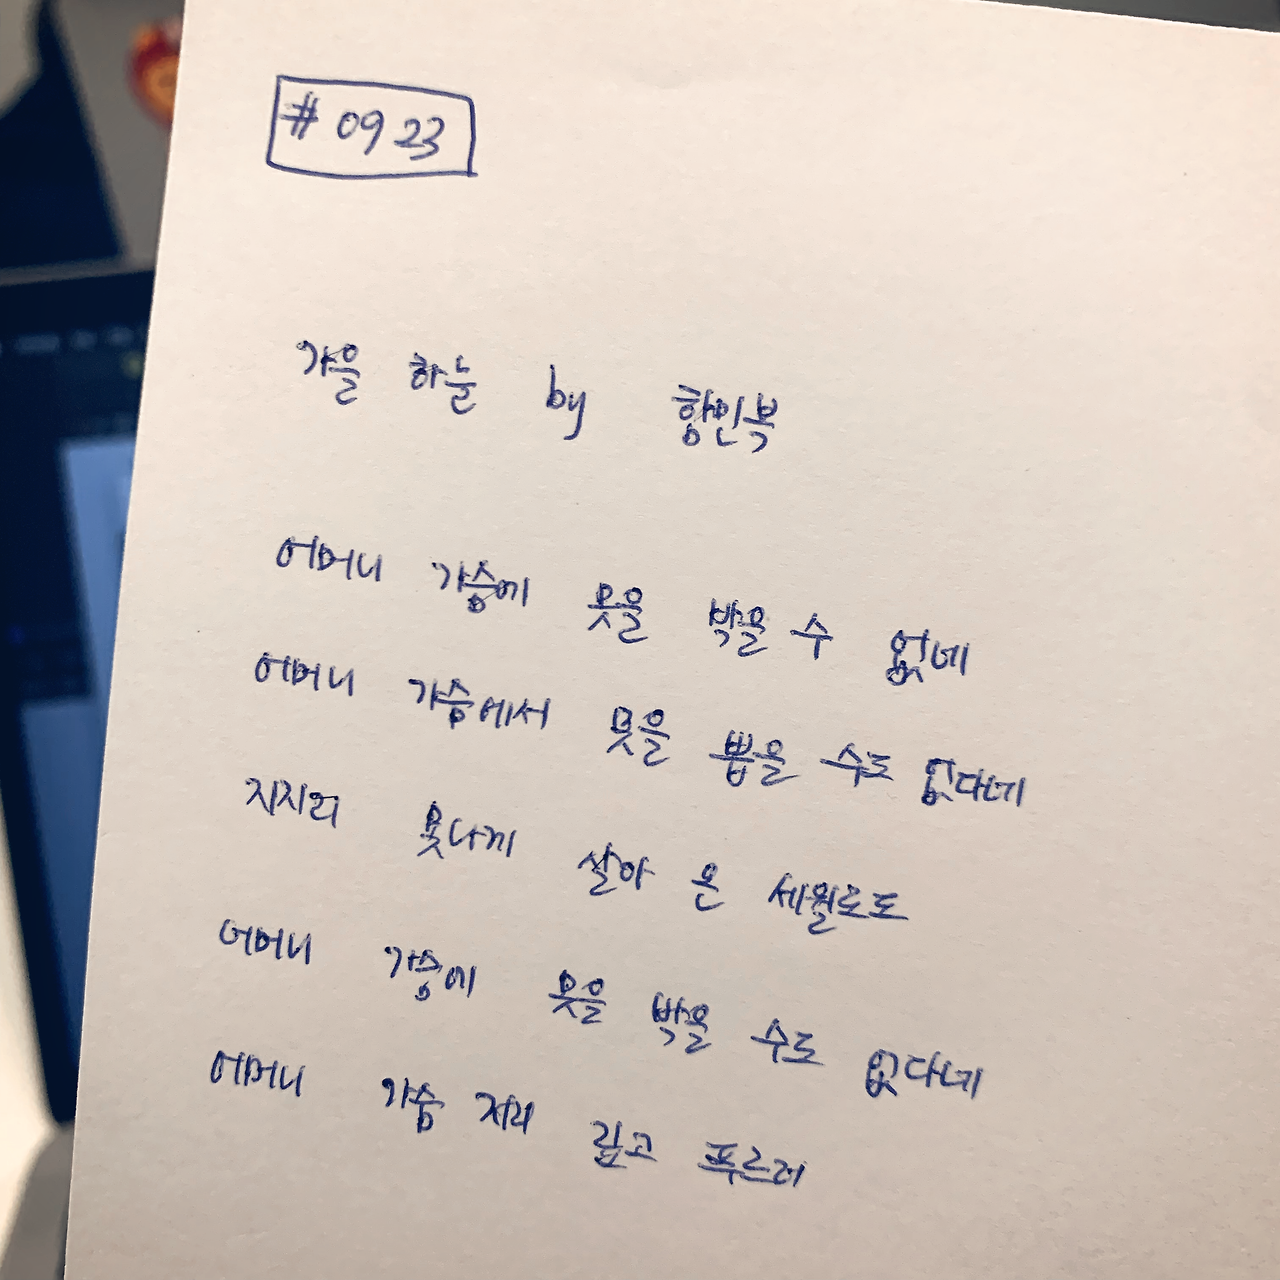 #0923
가을 하늘 by 함민복
어머니 가슴에 못을 박을 수 없네
어머니 가슴에서 못을 뽑을 수도 없다네
지지리 못나게 살아 온 세월로도
어머니 가슴에 못을 박을 수도 없다네
어머니 가슴 저리 깊고 푸르러